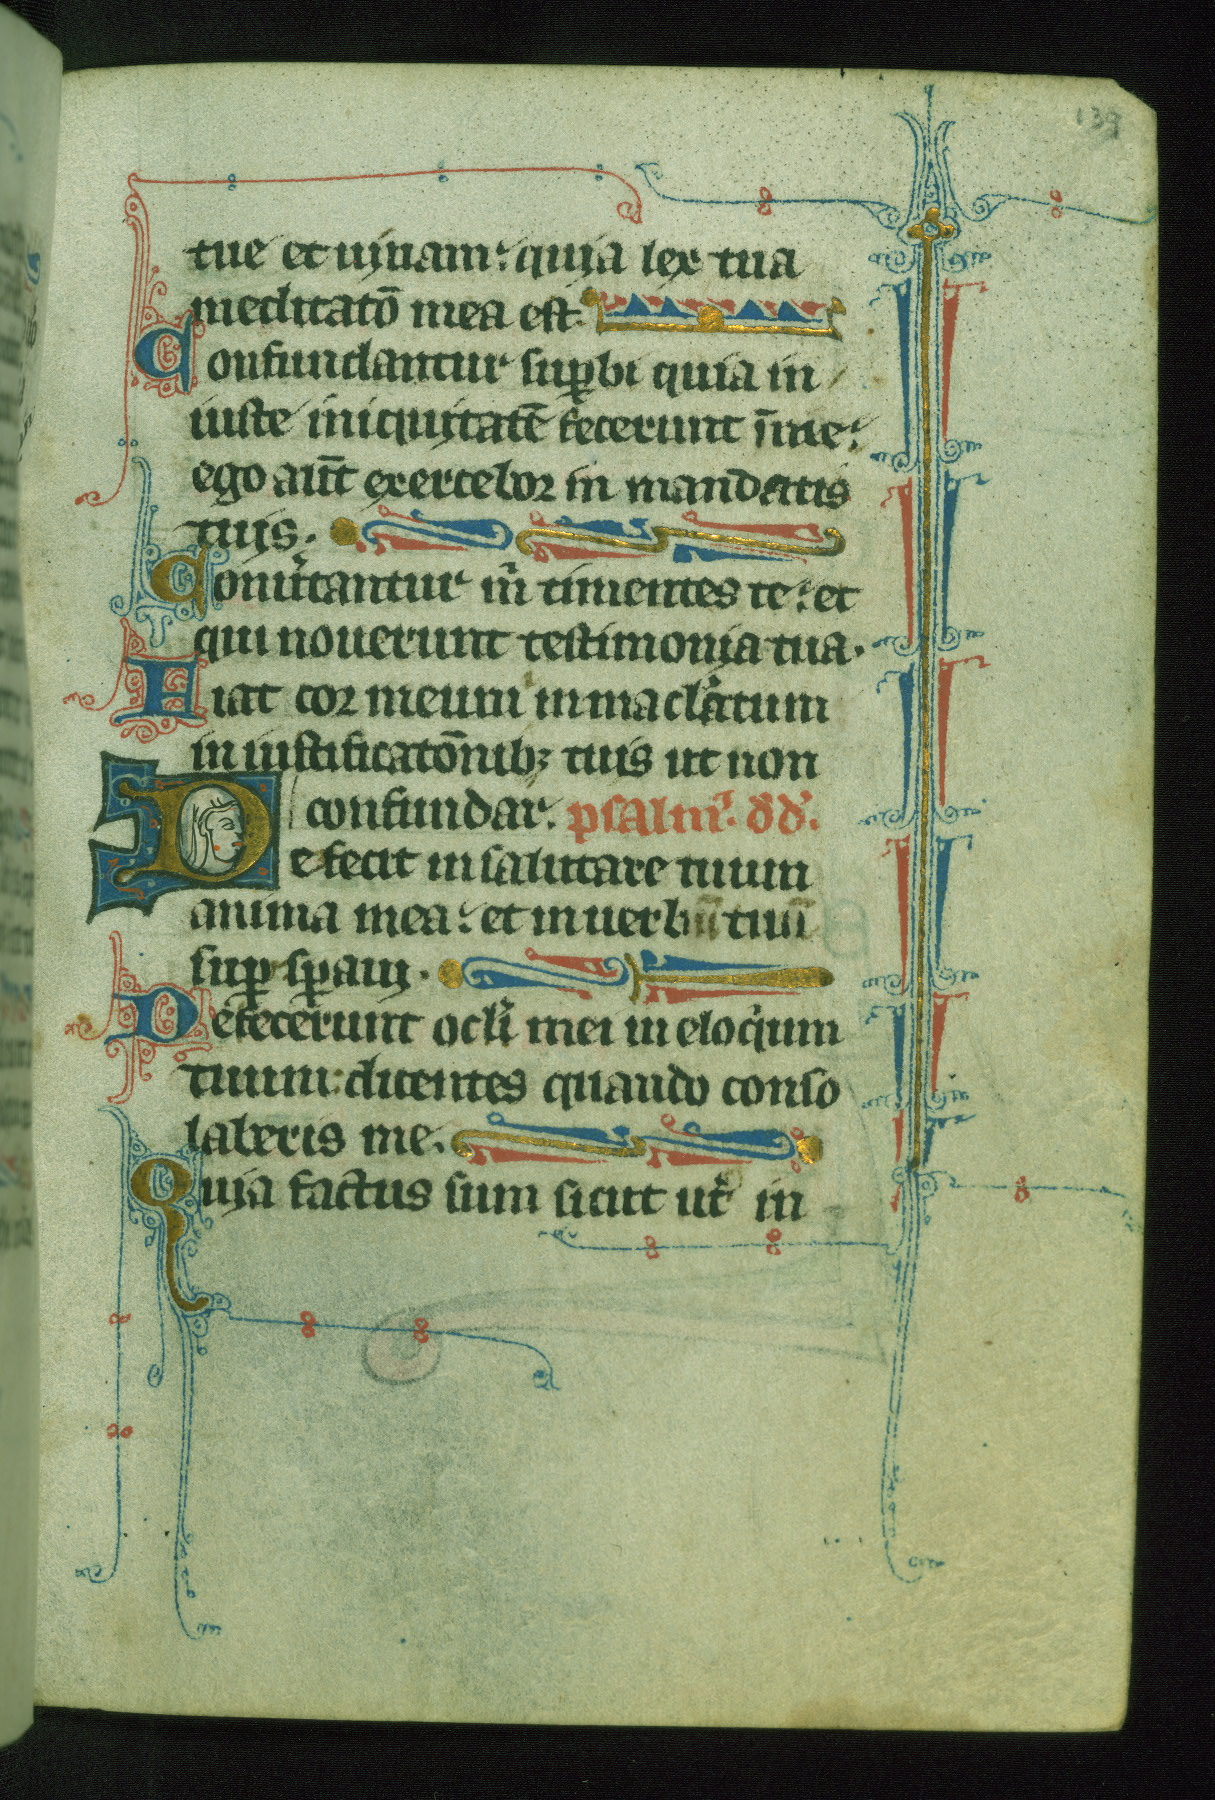 139
tue et uiuam: quia lex tua
meditatō mea est.
Confundantur suꝑbi quia in
iuste iniquitatē fecerunt ī me:
ego aut̄ exercebor in mandatis
tuis.
Conuᷓtantur m̄ timentes te: et
qui nouerunt testimonia tua.
Fiat cor meum inmaculᷓatum
in iustificatōnibꝫ tuis ut non
confundar. psalm᷒. dd᷒.
Defecit in salutare tuum
anima mea: et in uerbū tuū
suꝑ sꝑaui.
Defecerunt oclī mei in eloqͥum
tuum: dicentes quando conso
laberis me.
Quia factus sum sicut ut̄ in